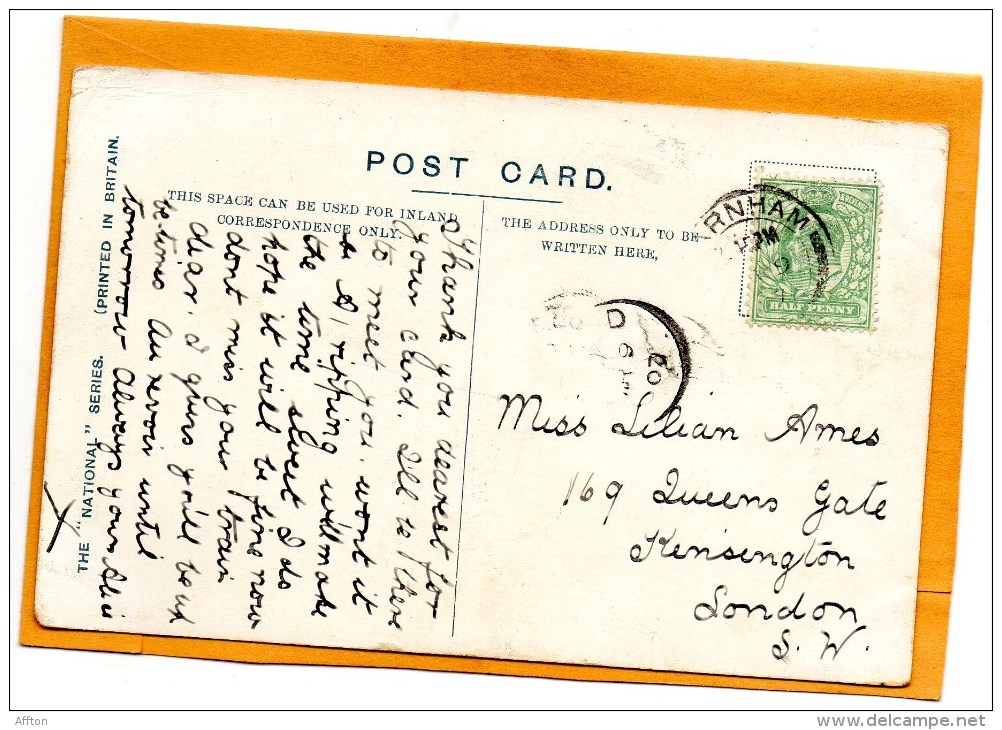 POST CARD.
THIS SPACE CAN BE USED FOR INLAND
CORRESPONDENCE ONLY.
THE ADDRESS ONLY TO BE
WRITTEN HERE,
THE "NATIONAL" SERIES. (PRINTED IN BRITAIN.
RNHAM
PM
HALF PENNY
D
6
Thank you dearest for
your card. I'll be there
to meet you. wont it
be ripping will make
the time sweet I do
hope it will be fine now
dont miss your train
dear. I guess you'll be up
betimes Au revoir until
tomorrow always yours
Miss Lilian Ames
169 Queens Gate
Kensington
London
S. W.
Affton
delcampe.net